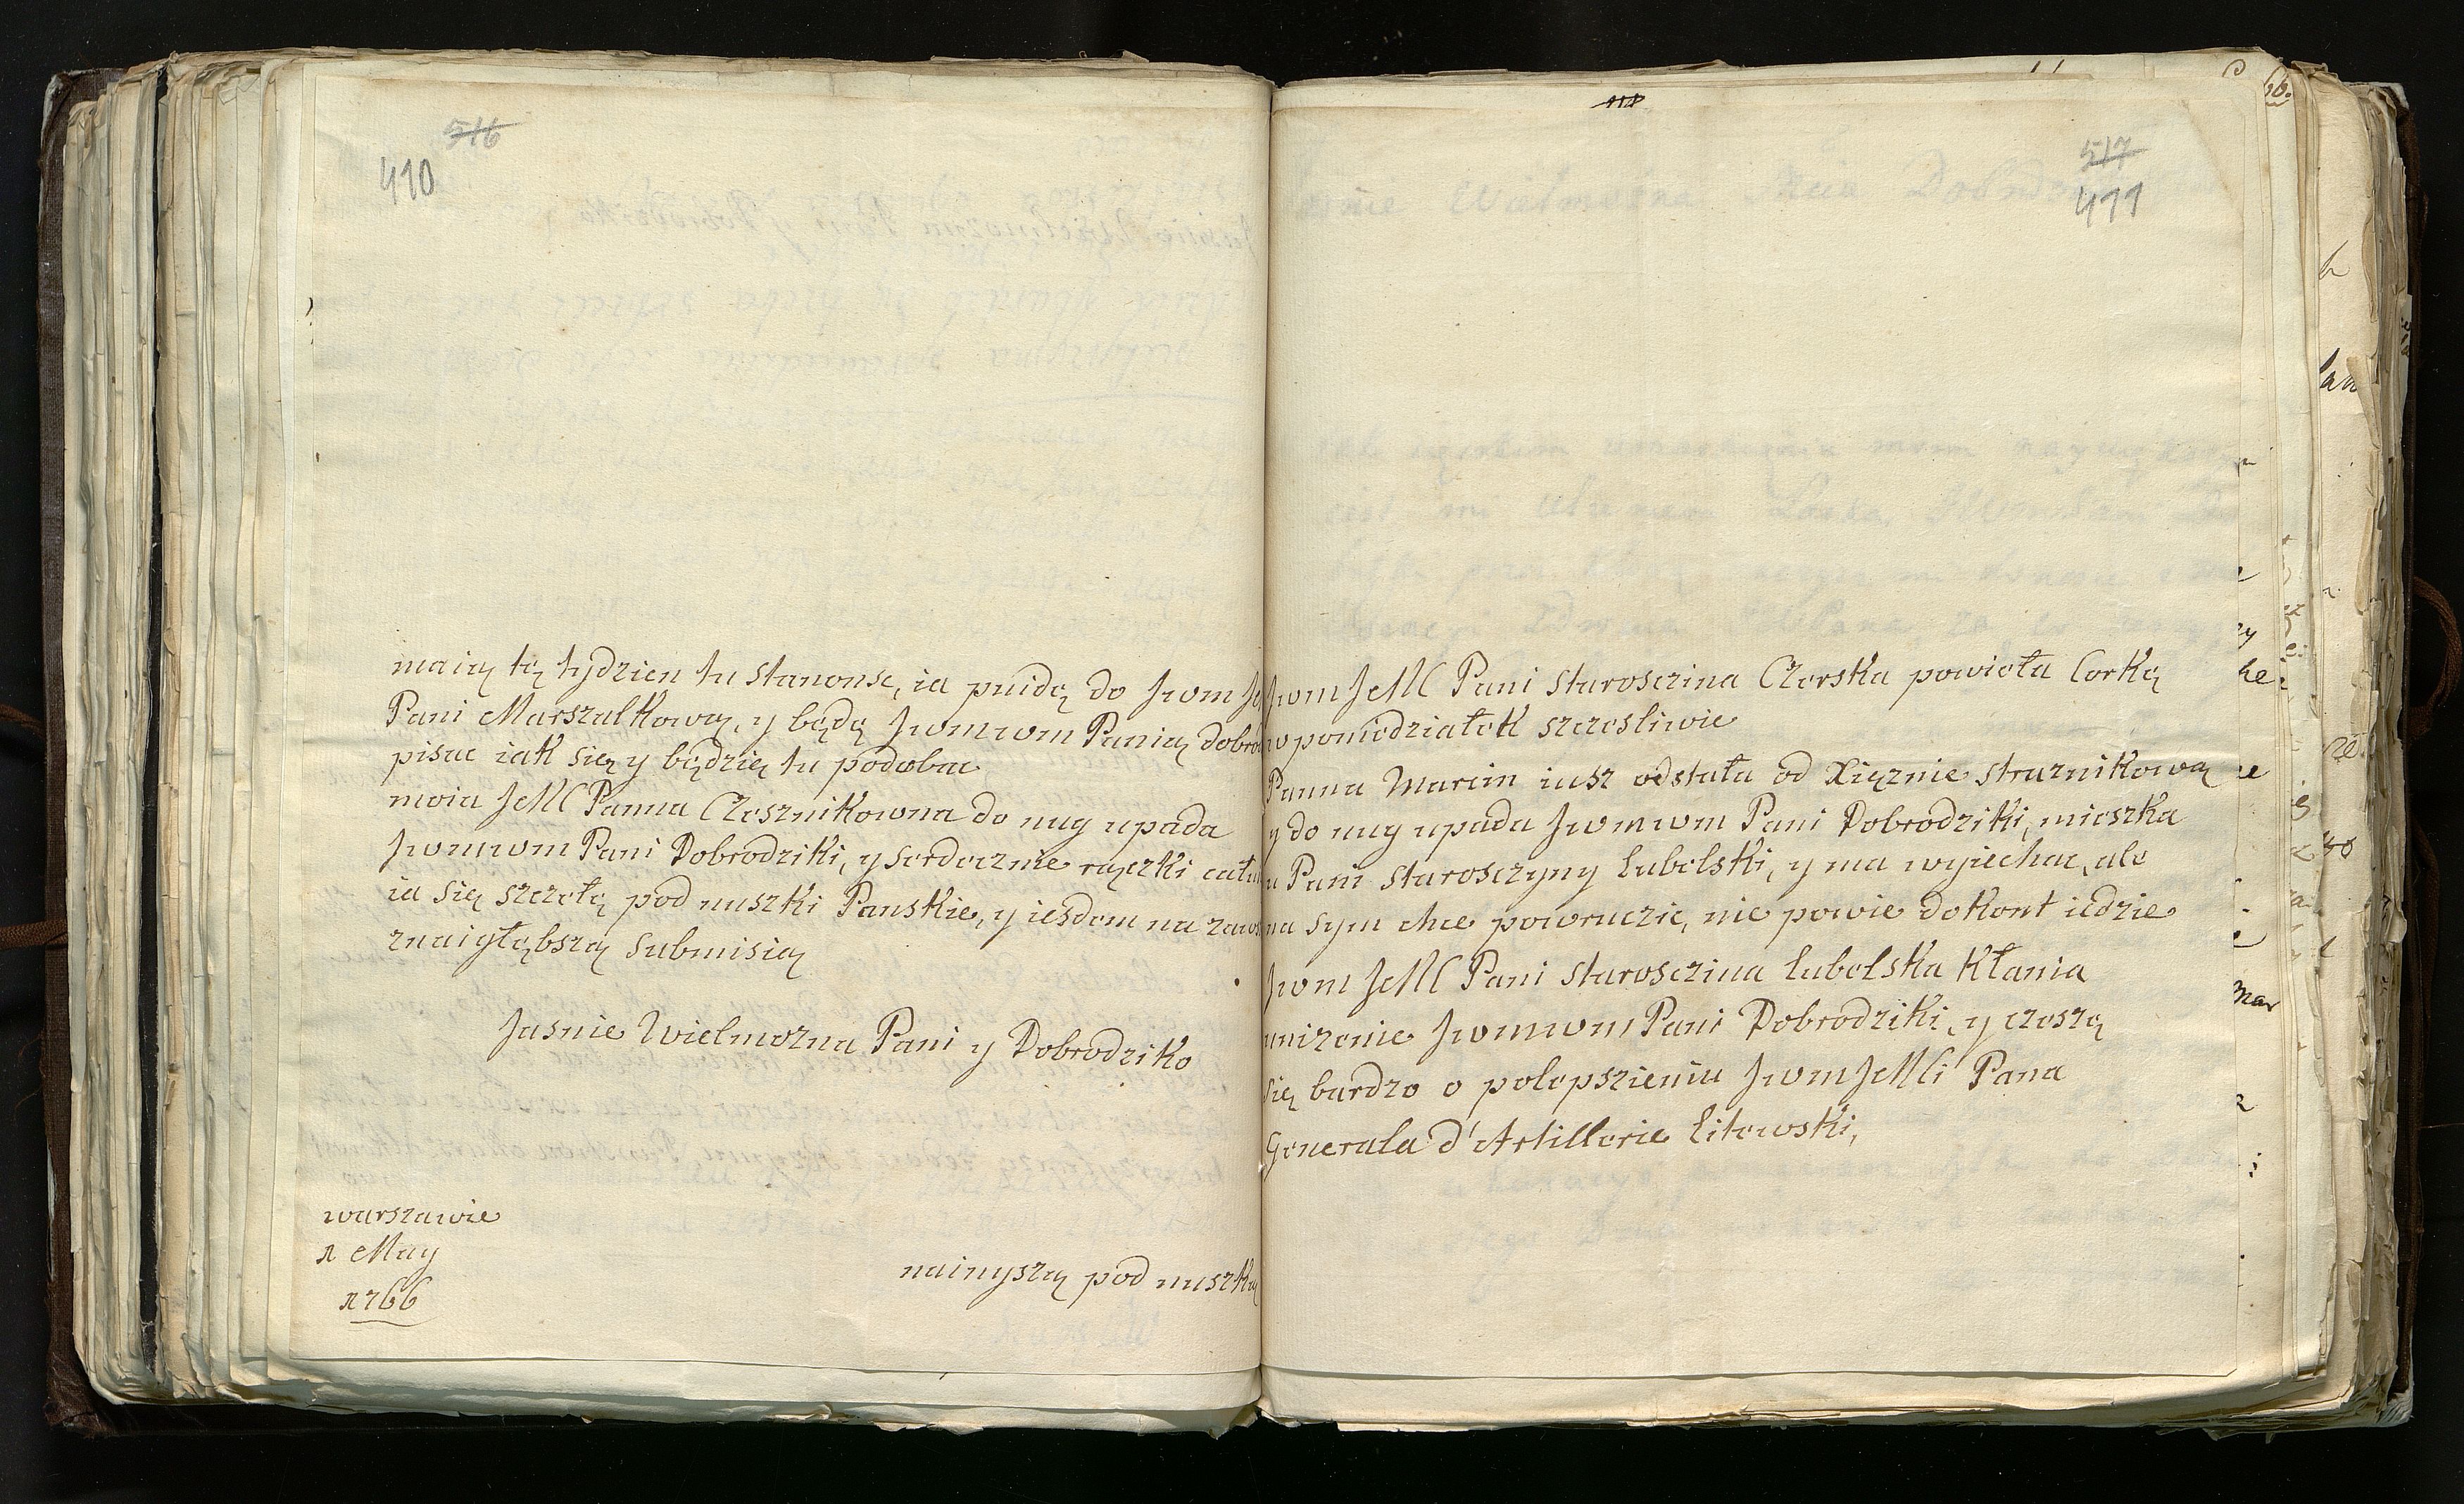 516
490
maią tę tydzien tu stanonsc, ia puidę do Jwm
Pani Marszalkowy, y będę Jwmwm Panią dobro
pisac iak się y będzię tu podobac
moia JeMC Panna Czesznikowna do nug upada
Jwmwm Pani Dobrodziki, y serdecznie rączki cału
ia się szczełę pod nuszki Panskie, y iesdem na zaws
znaigłębszą submisią
Jasnie Wielmozna Pani y Dobrodziko
warszawie
1 May
1766
nainyszą pod nuszką
517
491
Jwm JeMC Pani starosczina Czerska powieła Corkę
w poniedziałek szczesliwie
Panna Marcin iusz odstała od Xięznie straznikową
y do nug upada Jwmwm Pani Dobrodziki, mieszka
u Pani starosczyny Lubelski, y ma wyjechac, ale
na sym chce powruczic, nie powie dokont iedzie
Jwm JeMC Pani starosczina Lubelska kłania
unizenie Jwmwm Pani Dobrodziki, y czeszę
się bardzo o polepszieniu Jwm JeMCi Pana
Generala d'Artillerie Litewski,